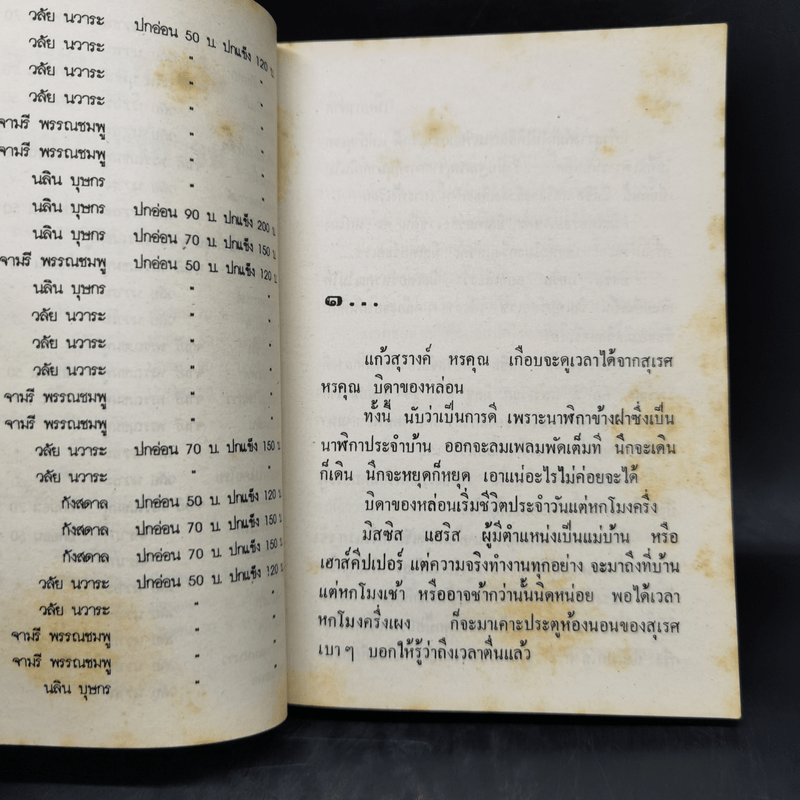 วลัย นวาระ ปกอ่อน 50 บ. ปกแข็ง 120 บ.
วลัย นวาระ " "
วลัย นวาระ " "
วลัย นวาระ " "
จามรี พรรณชมพู " "
จามรี พรรณชมพู " "
นลิน บุษกร " "
นลิน บุษกร ปกอ่อน 90 บ. ปกแข็ง 200 บ.
นลิน บุษกร ปกอ่อน 70 บ. ปกแข็ง 150 บ.
จามรี พรรณชมพู ปกอ่อน 50 บ. ปกแข็ง 120 บ.
นลิน บุษกร " "
วลัย นวาระ " "
วลัย นวาระ " "
วลัย นวาระ " "
จามรี พรรณชมพู " "
จามรี พรรณชมพู " "
วลัย นวาระ ปกอ่อน 70 บ. ปกแข็ง 150 บ.
วลัย นวาระ " "
กังสดาล ปกอ่อน 50 บ. ปกแข็ง 120 บ.
กังสดาล ปกอ่อน 70 บ. ปกแข็ง 150 บ.
กังสดาล ปกอ่อน 70 บ. ปกแข็ง 150 บ.
วลัย นวาระ ปกอ่อน 50 บ. ปกแข็ง 120 บ.
วลัย นวาระ "
จามรี พรรณชมพู "
จามรี พรรณชมพู "
นลิน บุษกร "
๑...
แก้วสุรางค์ หรคุณ เกือบจะดูเวลาได้จากสุเรศ
หรคุณ บิดาของหล่อน
ทั้งนี้ นับว่าเป็นการดี เพราะนาฬิกาข้างฝาซึ่งเป็น
นาฬิกาประจำบ้าน ออกจะลมเพลมพัดเต็มที นึกจะเดิน
ก็เดิน นึกจะหยุดก็หยุด เอาแน่อะไรไม่ค่อยจะได้
บิดาของหล่อนเริ่มชีวิตประจำวันแต่หกโมงครึ่ง
มิสซิส แฮริส ผู้มีตำแหน่งเป็นแม่บ้าน หรือ
เฮาส์คีปเปอร์ แต่ความจริงทำงานทุกอย่าง จะมาถึงที่บ้าน
แต่หกโมงเช้า หรืออาจช้ากว่านั้นนิดหน่อย พอได้เวลา
หกโมงครึ่งเผง ก็จะมาเคาะประตูห้องนอนของสุเรศ
เบาๆ บอกให้รู้ว่าถึงเวลาตื่นแล้ว